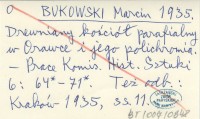 o BUKOWSKI Marcin 1935.
Drewniany kościół parafialny
w Orawce i jego polichromia.
– Prace Komis. Hist. Sztuki
6: 64*–71*. Też odb:
Kraków 1935, ss. 11.